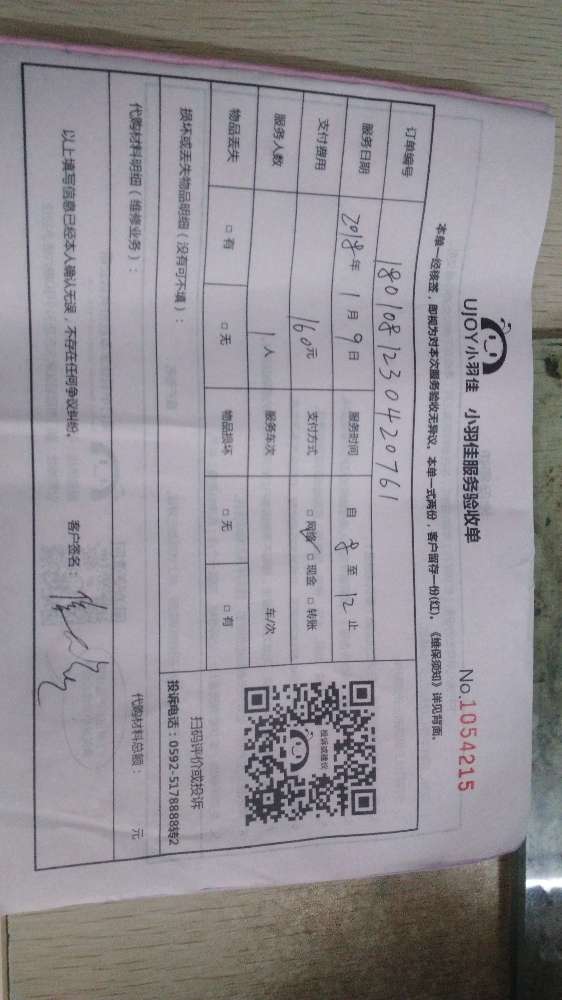 UJOY小羽佳 小羽佳服务验收单
No.1054215
本单一经核签，即视为对本次服务验收无异议。本单一式两份，客户留存一份(红)。《维保须知》详见背面。
订单编号 1801081230420761
服务日期 2018年 1月 9日 服务时间 自 8 至 12 止
支付费用 160元 支付方式 □网络 □现金 □转账
服务人数 1人 服务车次 车/次
物品丢失 □有 □无 物品损坏 □无 □有
投诉或建议
扫码评价或投诉
投诉电话：0592-5178888转2
损坏或丢失物品明细（没有可不填）：
代购材料明细（维修业务）： 代购材料总额： 元
以上填写信息已经本人确认无误，不存在任何争议纠纷。 客户签名：